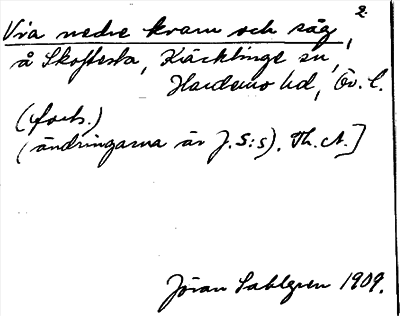 2.
Via nedre kvarn och såg,
å Skoftesta, Kräcklinge sn,
Hardemo hd, Ör. l.
(forts.)
(ändringarna är J. S:s). Th. A.]
Jöran Sahlgren 1909.